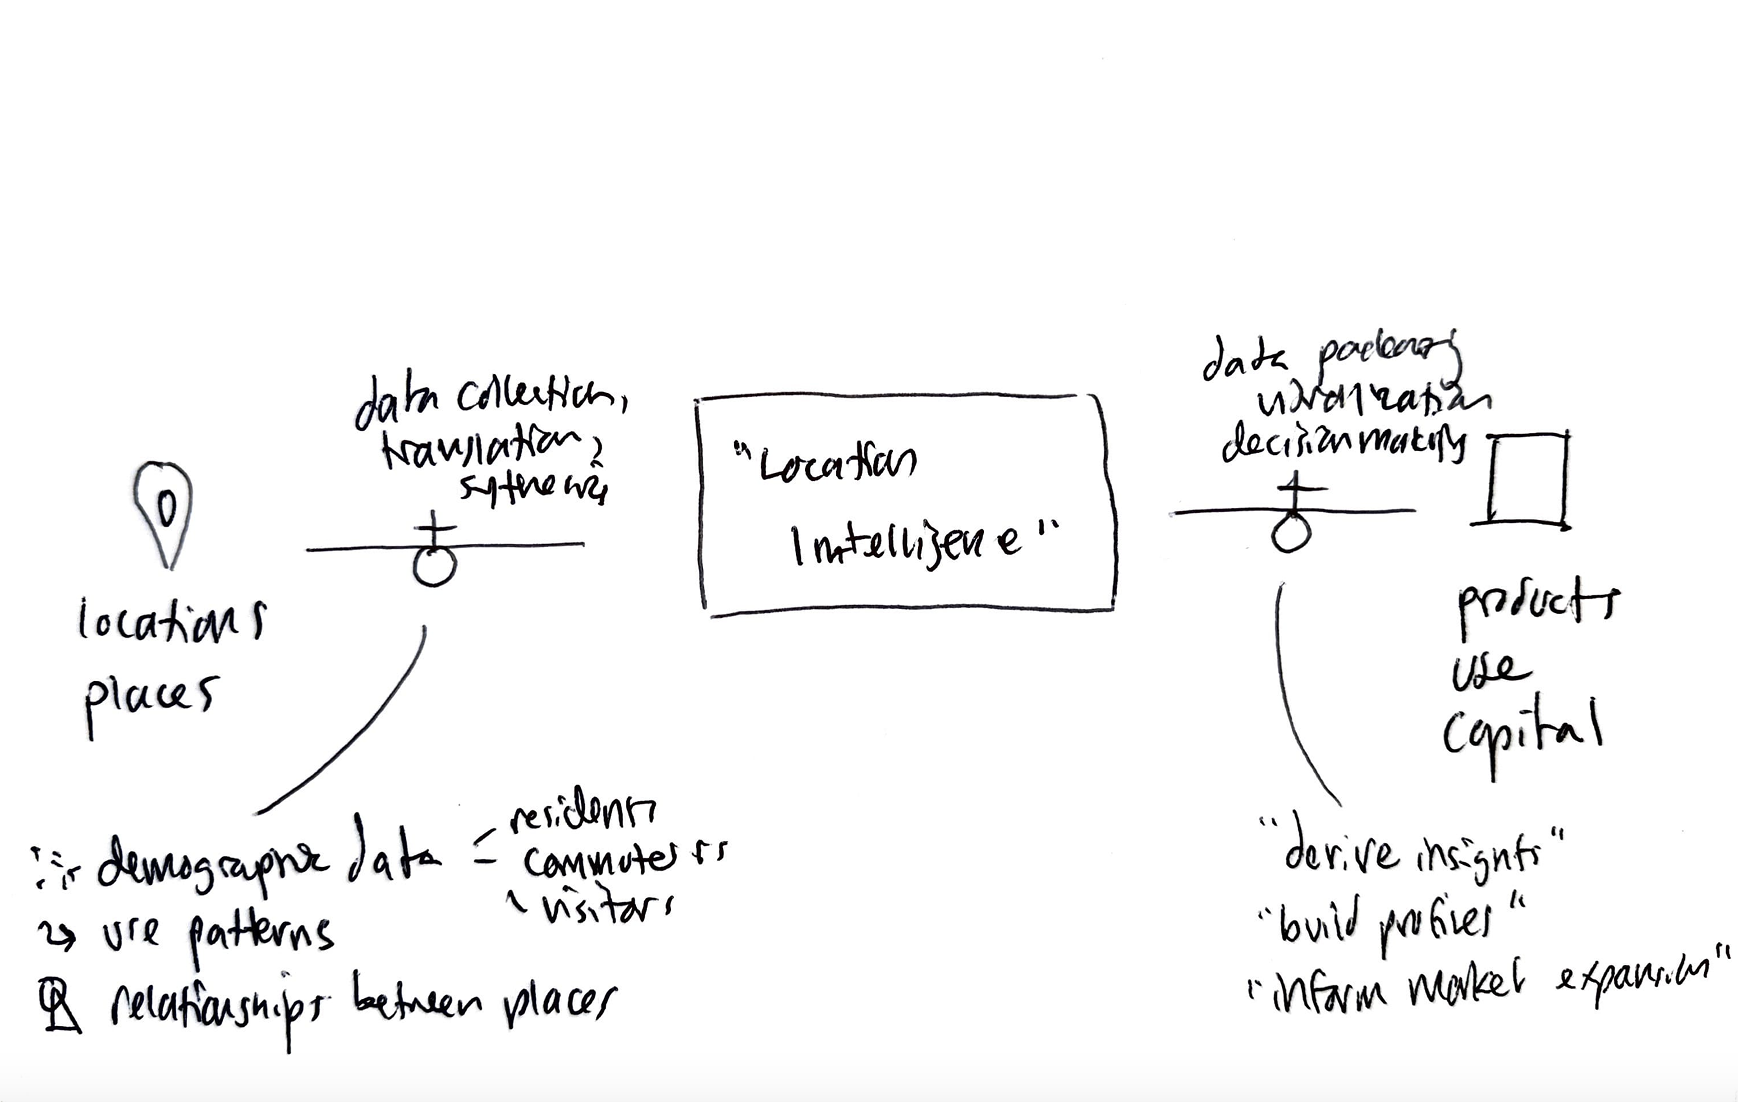 data collection,
translation,
synthesis
"Location
Intelligence"
data packaging
visualization
decisionmaking
locations
places
products
use
capital
demographic data
residents
commuters
visitors
use patterns
relationships between places
"derive insights"
"build profiles"
"inform market expansion"